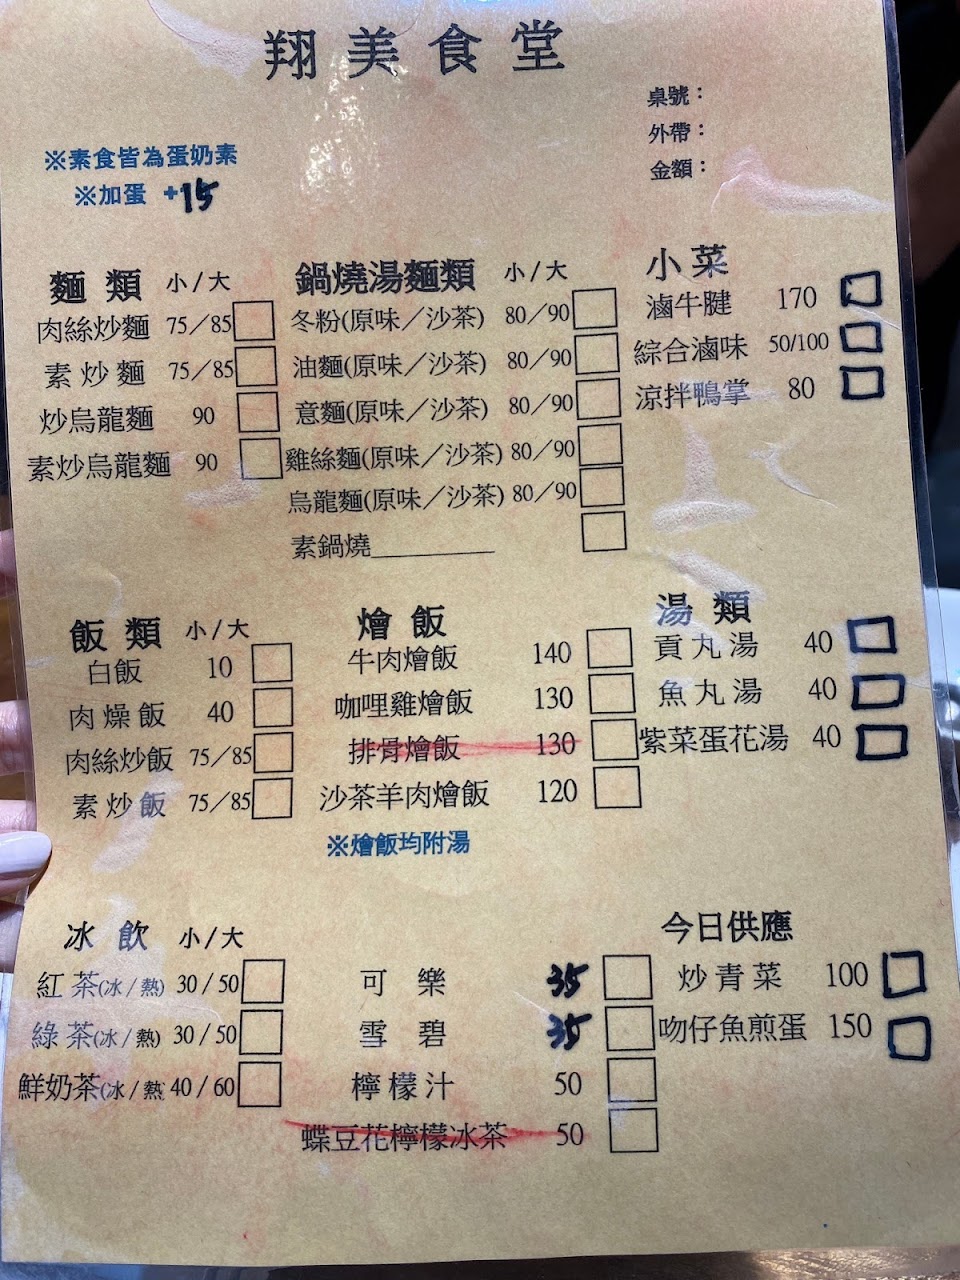 翔美食堂
桌號：
外帶：
金額：
※素食皆為蛋奶素
※加蛋 +15
麵類 小/大
肉絲炒麵 75／85
素炒麵 75／85
炒烏龍麵 90
素炒烏龍麵 90
鍋燒湯麵類 小/大
冬粉(原味／沙茶) 80／90
油麵(原味／沙茶) 80／90
意麵(原味／沙茶) 80／90
雞絲麵(原味／沙茶) 80／90
烏龍麵(原味／沙茶) 80／90
素鍋燒__________
小菜
滷牛腱 170
綜合滷味 50/100
涼拌鴨掌 80
飯類 小/大
白飯 10
肉燥飯 40
肉絲炒飯 75／85
素炒飯 75／85
燴飯
牛肉燴飯 140
咖哩雞燴飯 130
排骨燴飯 130
沙茶羊肉燴飯 120
※燴飯均附湯
湯類
貢丸湯 40
魚丸湯 40
紫菜蛋花湯 40
冰飲 小/大
紅茶(冰/熱) 30/50
綠茶(冰/熱) 30/50
鮮奶茶(冰/熱) 40/60
可樂 35
雪碧 35
檸檬汁 50
蝶豆花檸檬冰茶 50
今日供應
炒青菜 100
吻仔魚煎蛋 150